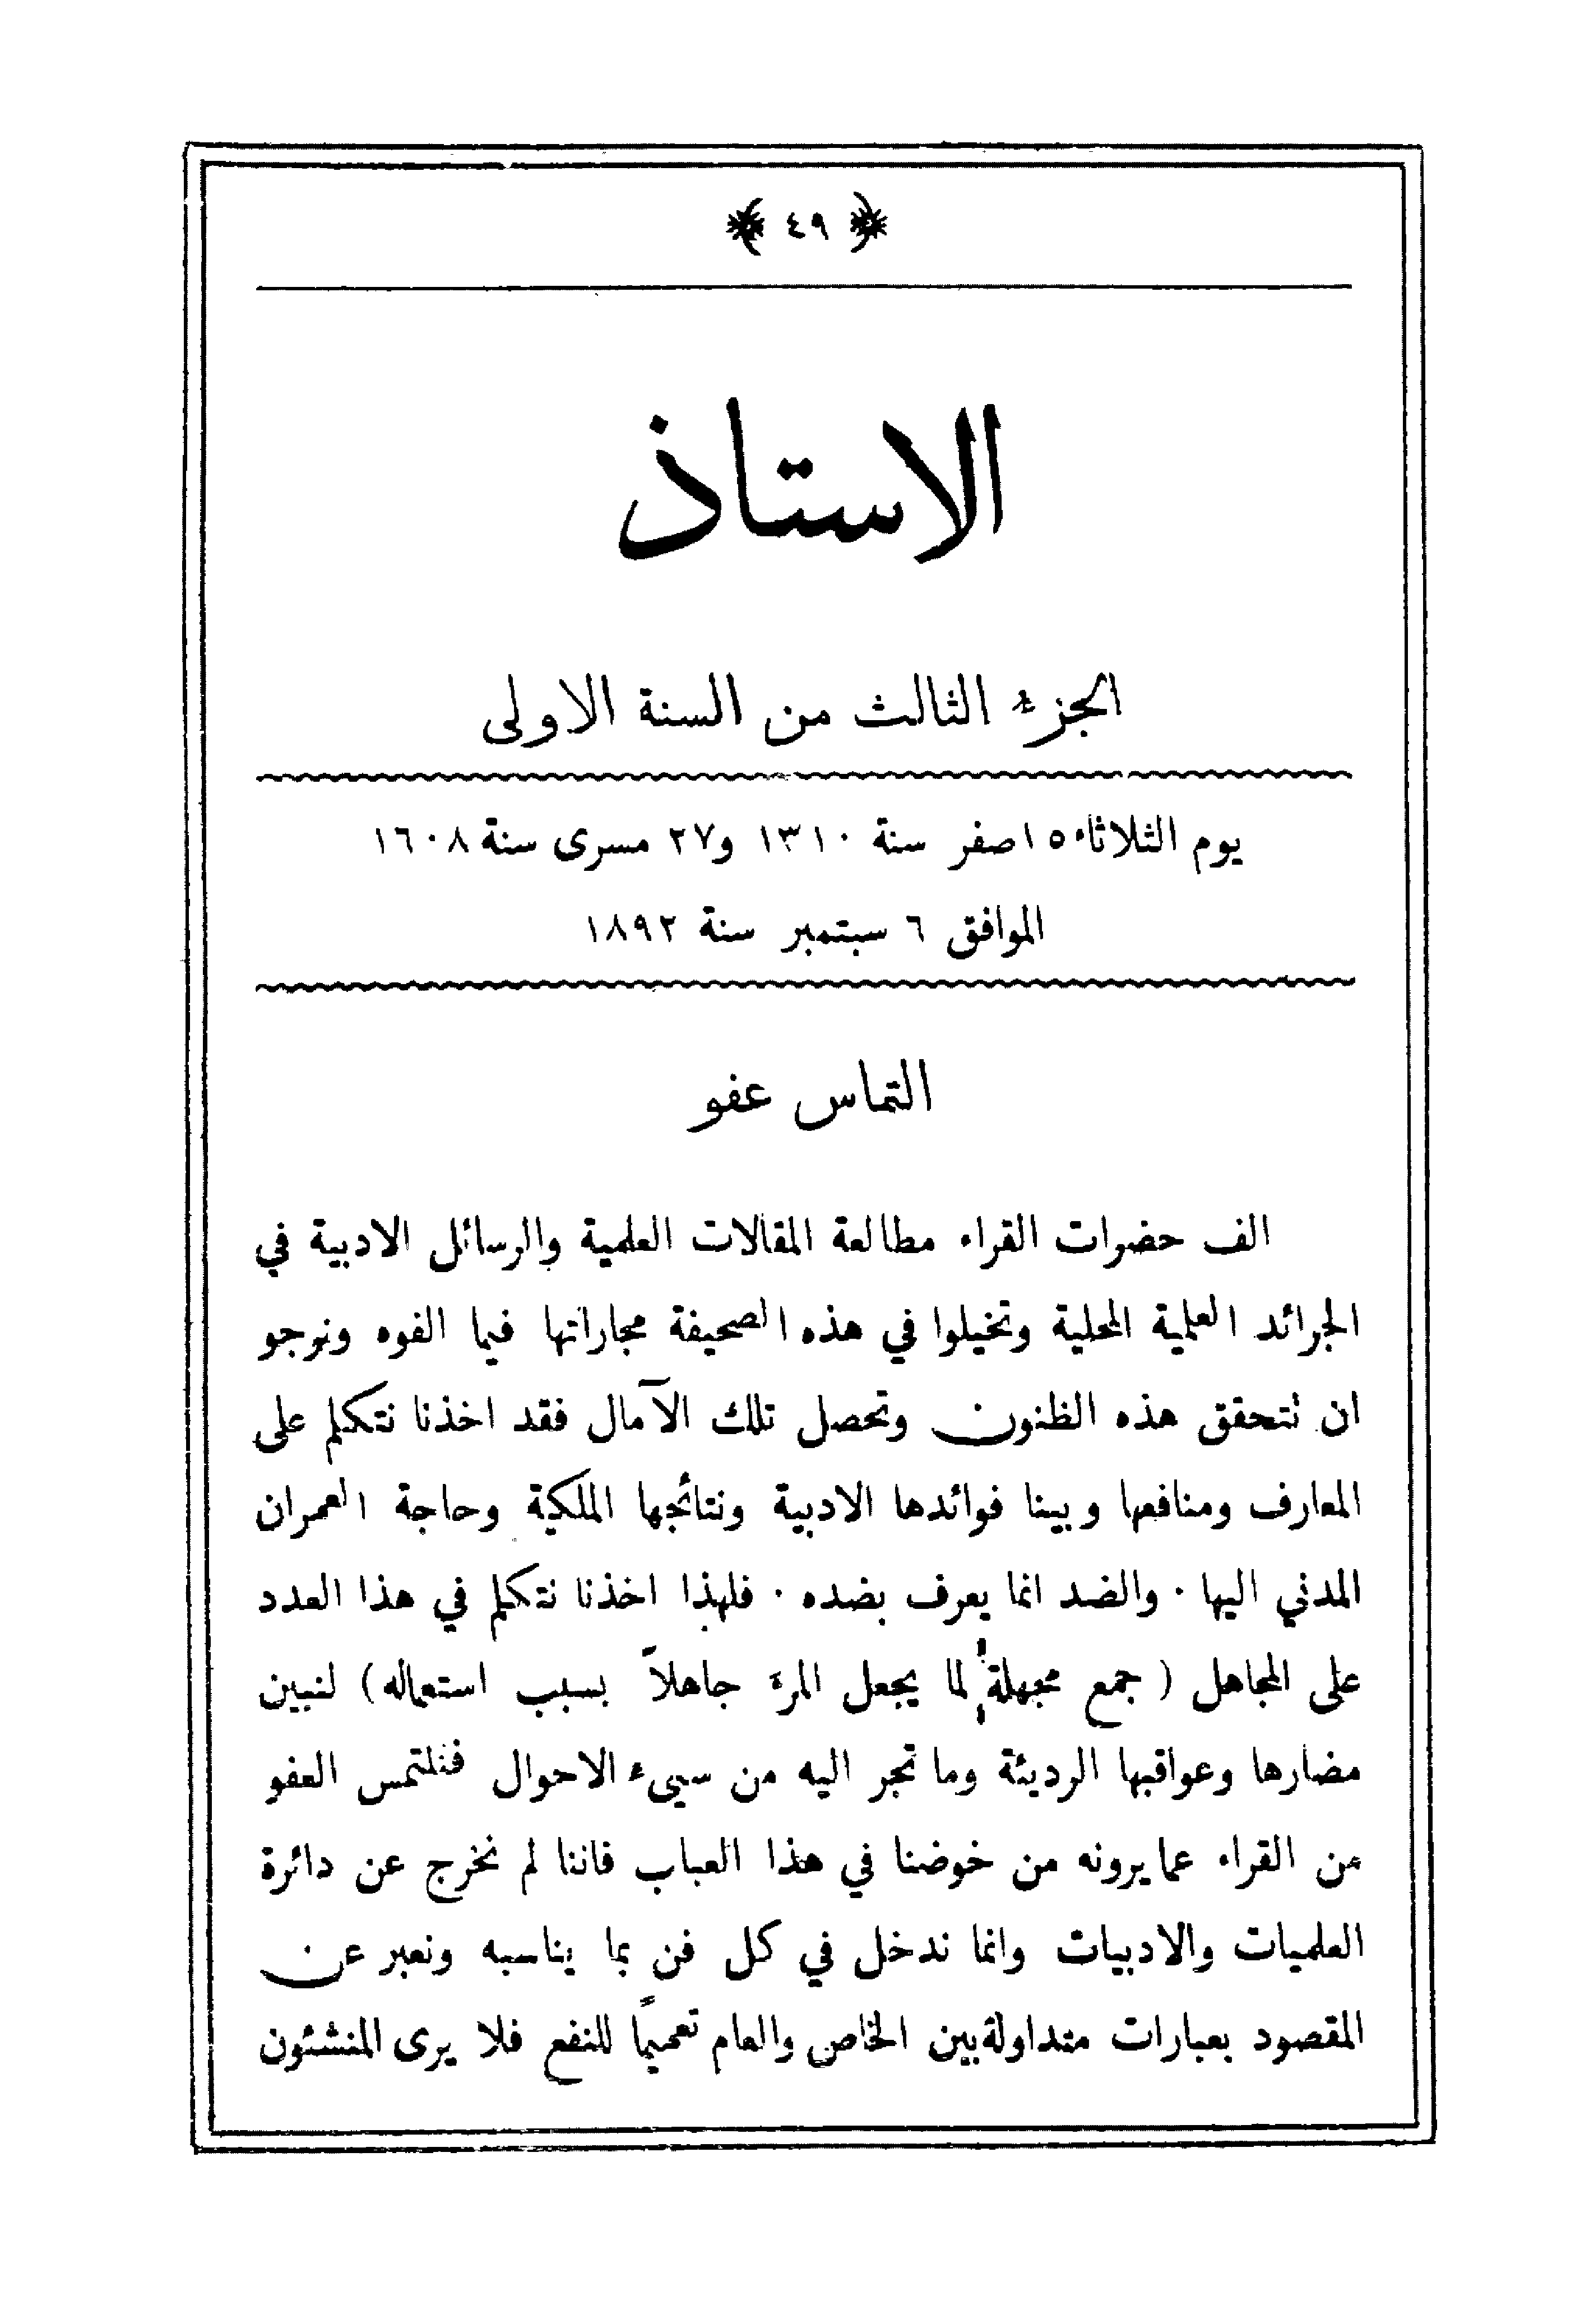 ﴿ ٤٩ ﴾
الاستاذ
الجزء الثالث من السنة الاولى
يوم الثلاثاء ١٥ صفر سنة ١٣١٠ و٢٧ مسرى سنة ١٦٠٨
الموافق ٦ سبتمبر سنة ١٨٩٢
التماس عفو
الف حضرات القراء مطالعة المقالات العلمية والرسائل الادبية في
الجرائد العلمية المحلية وتخيلوا في هذه الصحيفة مجاراتها فيما الفوه ونرجو
ان تتحقق هذه الظنون وتحصل تلك الآمال فقد اخذنا نتكلم على
المعارف ومنافعها وبينا فوائدها الادبية ونتائجها الملكية وحاجة العمران
المدني اليها ٠ والضد انما يعرف بضده ٠ فلهذا اخذنا نتكلم في هذا العدد
على المجاهل ( جمع مجهلة لما يجعل المرء جاهلاً بسبب استعماله ) لنبين
مضارها وعواقبها الرديئة وما تجر اليه من سيىء الاحوال فنلتمس العفو
من القراء عما يرونه من خوضنا في هذا العباب فاننا لم نخرج عن دائرة
العلميات والادبيات وانما ندخل في كل فن بما يناسبه ونعبر عن
المقصود بعبارات متداولة بين الخاص والعام تعميماً للنفع فلا يرى المنشئون